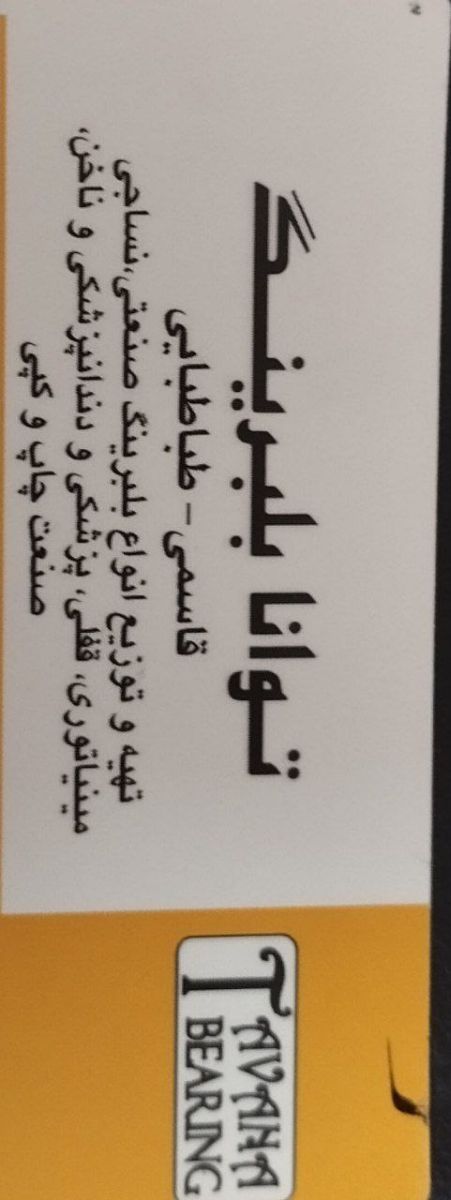 توانا بلبرینگ
قاسمی - طباطبایی
تهیه و توزیع انواع بلبرینگ صنعتی،نساجی
مینیاتوری، قفلی، پزشکی و دندانپزشکی و ناخن،
صنعت چاپ و کپی
TAVANA
BEARING